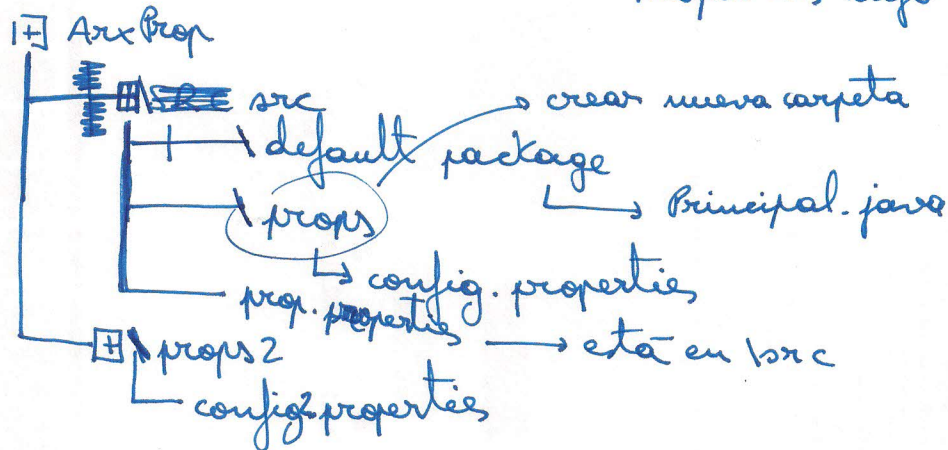 [+] ArxProp
\src → crear nueva carpeta
\ default package
→ Principal.java
\ props
→ config.properties
prop.properties → está en \src
[+] \ props2
config2.properties